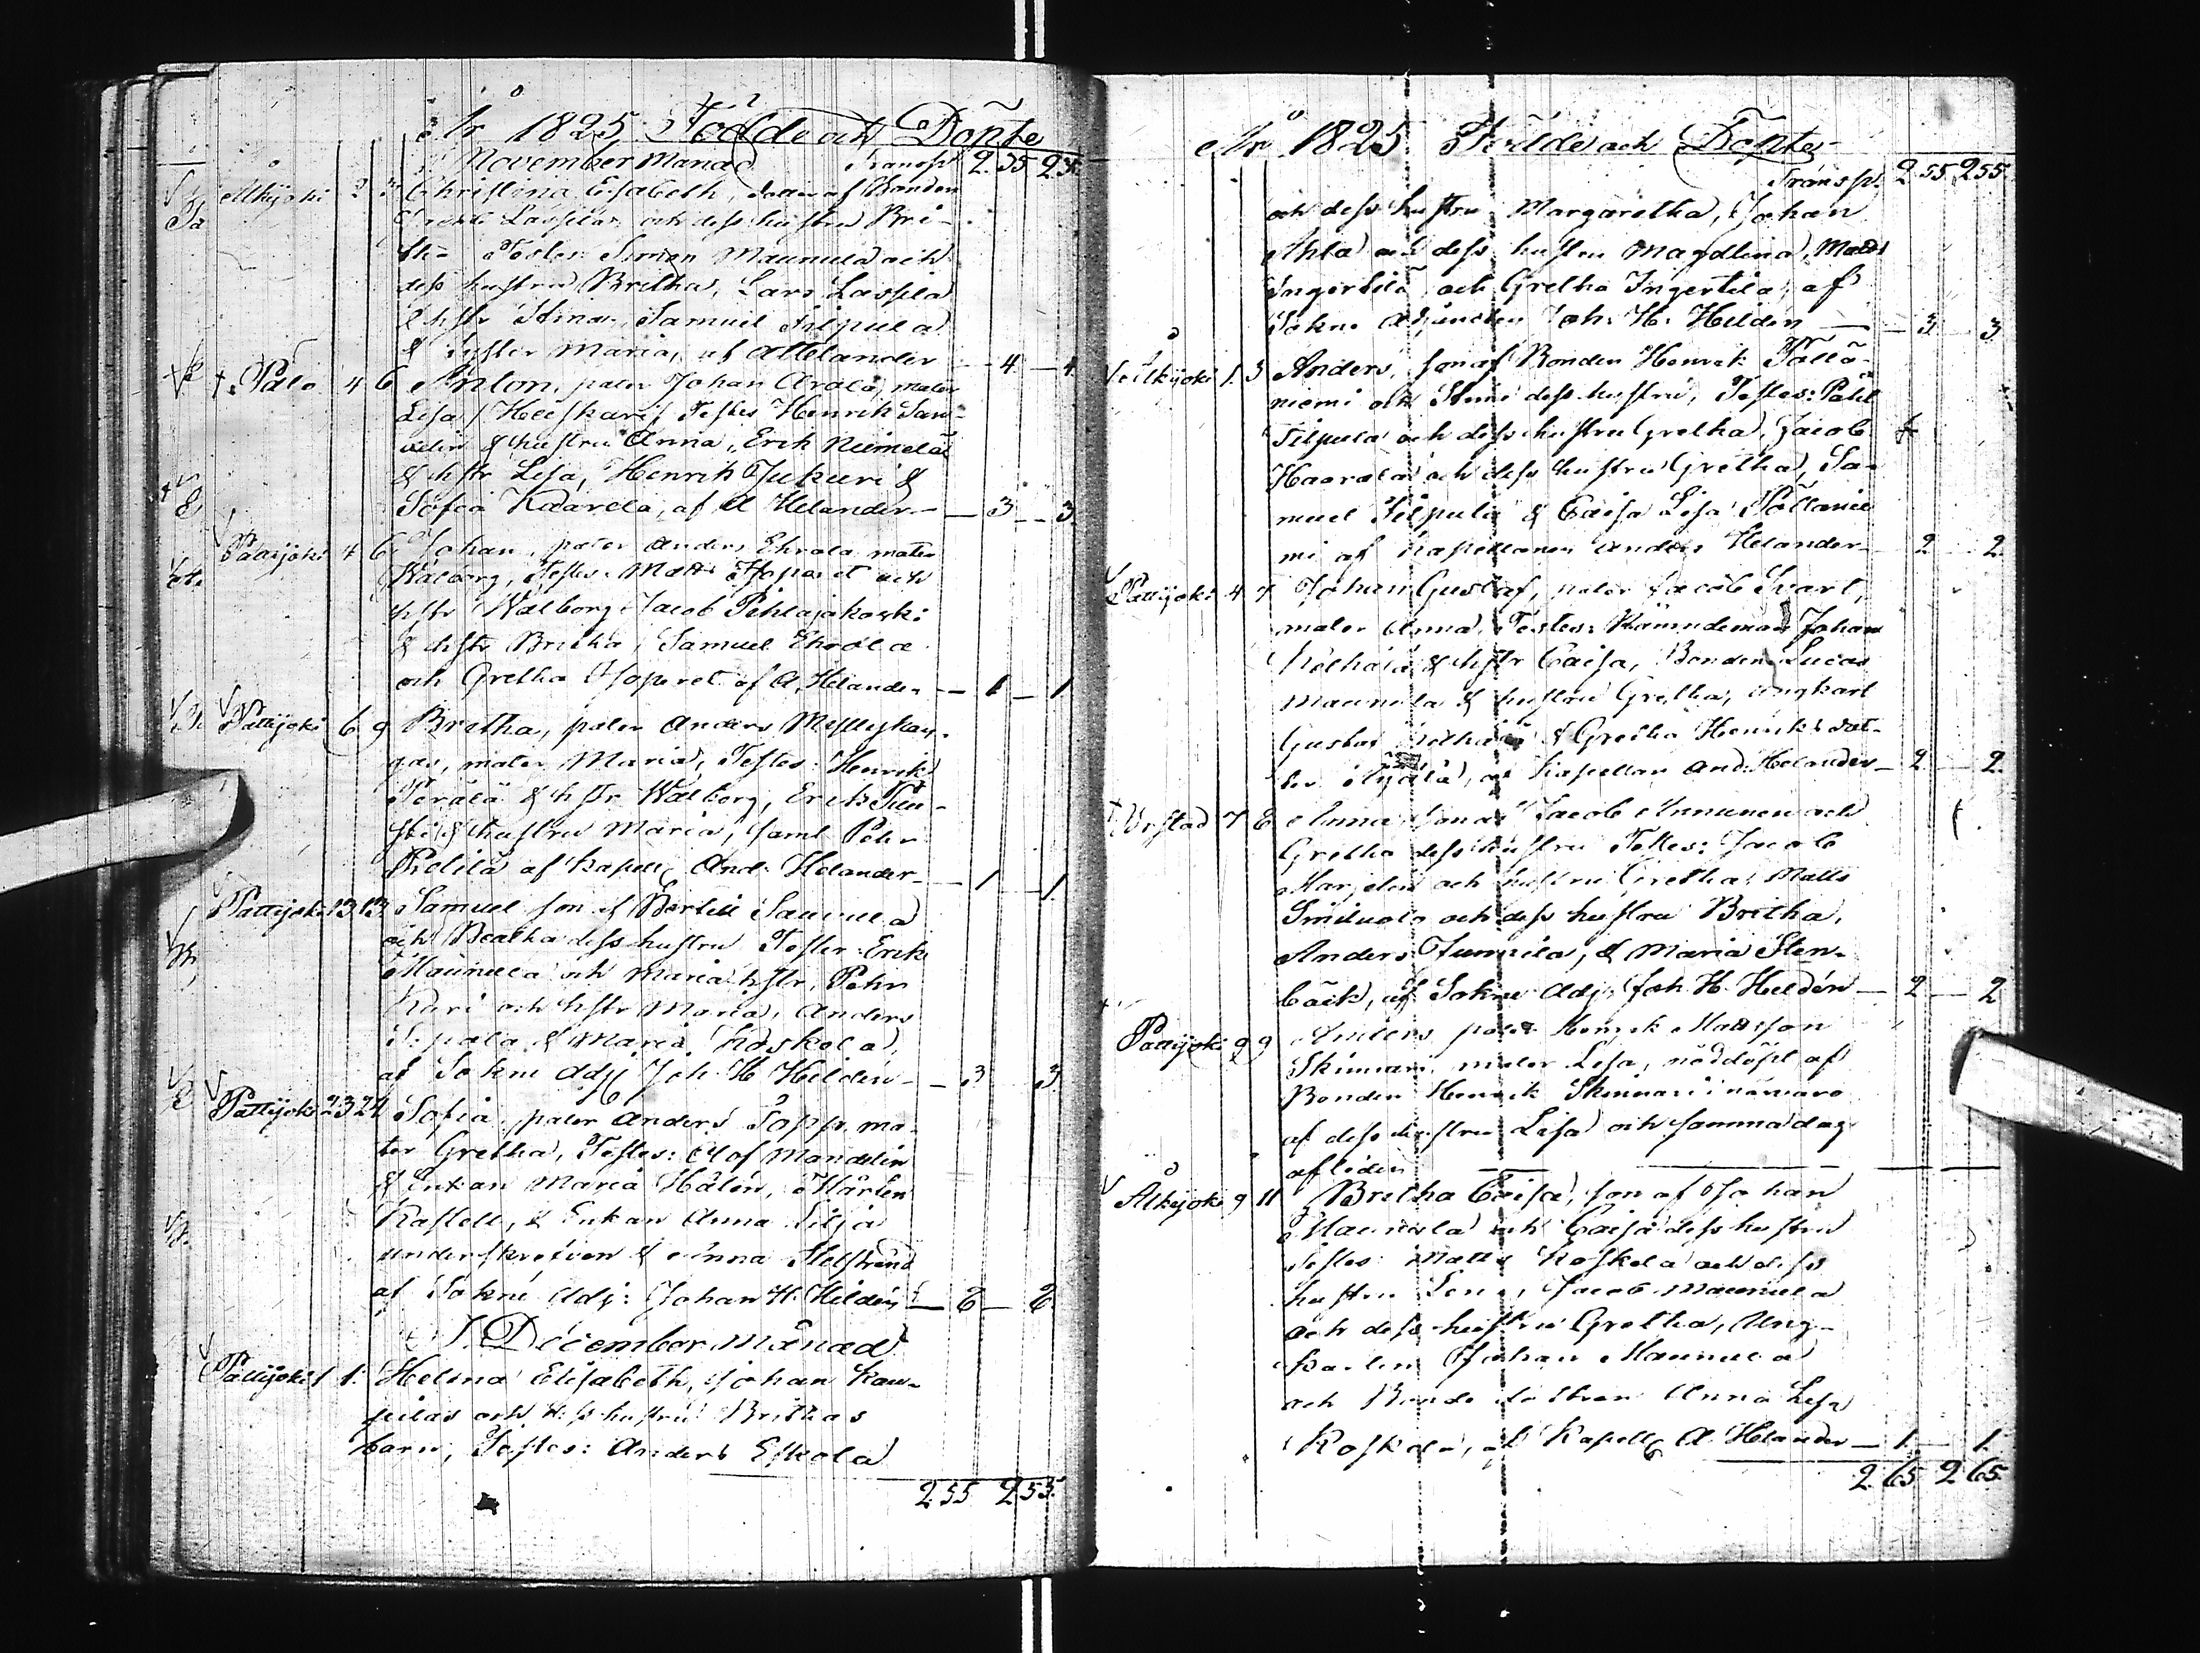 År 1825 Födde och Döpte
November Månad Transp. 235 235
Ålkijoki 2 3 Christina Elisabeth, barn af Bonden
Lassilas och dess hustru Bri-
tha Testes Simon Maunula och
dess hustru Britha, Lars Lassila
& hstr Stina, Samuel Filpula
& syster Maria, af A Helander — 4 — 4
Palo 4 6 Anton, pater Johan Arala, mater
Lisa Heiskari Testes Henrik San-
& hustru Anna, Erik Niemelä
& hstr Lisa, Henrik Jukuri &
Sofia Kaarela, af A Helander — 3 — 3
Pattijoki 4 6 Johan, pater Anders Ehrola mater
Walborg, Testes Matts Isoparet och
hstr Walborg Jacob Pihlajakoski
& hstr Britha, Samuel Ehrola
och Gretha Isoparet af A. Helander — 1 — 1
Pattijoki 6 9 Britha, pater Anders Myllykan-
gas, mater Maria, Testes: Henrik
Perälä & hstr Walborg, Erik
& hustru Maria, samt Petter
af Kapell. And. Helander — 1 — 1
Pattijoki 13 13 Samuel son af Bertill Saunula
och Beatha dess hustru Testes Erik
Maunula och Maria hstr, Pehr
Kari och hstr Maria, Anders
Sipola & Maria Koskela,
af Sokne Adj Joh. H Heldén — 3 3
Pattijoki 23 24 Sofia, pater Anders Topp, ma-
ter Gretha, Testes: Olof Mandelin
& Enkan Maria Hålén, Mårten
Kastell, & Enkan Anna Lilja
underskrefven & Anna Helstrand
af Sokne Adj: Johan H. Heldén — 6 — 6
December Månad
Pattijoki 1 1 Helena Elisabeth, Johan Kau-
pilas och dess hustru Brithas
barn, Testes: Anders Eskola
255 255
År 1825 Födde och Döpte
Transp. 255 255
och dess hustru Margaretha, Johan
Ahla och dess hustru Magdlena, Matts
Ingertilä och Gretha Ingertila, af
Sokne Adjuncten Joh. H. Heldén — 3 3
Ålkijoki 1 3 Anders, son af Bonden Henrik Pöllä-
niemi och Stina dess hustru, Testes: Påhl
Filpula och dess hustru Gretha, Jacob
Haarala och dess hustru Gretha, Sa-
muel Filpula & Caisa Lisa Pöllänie
mi af Kapellanen Anders Helander — 2 2
Pattijoki 4 7 Johan Gustaf, pater Jacob Svart,
mater Anna, Testes: Nämndeman Johan
& hstr Caisa, Bonden Lucas
Maunula & hustru Gretha, ungkarl
Gustaf & Gretha Henriks dot-
ter, af Kapellan And: Helander — 2 2
7 8 Anna, son af Jacob Annunen och
Gretha dess hustru Testes: Jacob
Marjelin och hustru Gretha, Matts
och dess hustru Britha,
Anders Junnila, & Maria Sten-
bäck, af Sokne Adj. Joh. H. Heldén — 2 — 2
Pattijoki 9 9 Anders pater Henrik Mattsson
Skinnari, mater Lisa, nöddöpt af
Bonden Henrik Skinnari i närvaro
af dess hustru Lisa och samma dag
afliden
Ålkijoki 9 11 Britha Caisa, son af Johan
Maunula och Caisa dess hustru
Testes: Matts Koskela och dess
hustru, Jacob Maunula
och dess hustru Gretha, Ung-
karlen Johan Maunula
och Bonde dottren Anna Lisa
Koskela, af Kapell. A Helander — 1 — 1
265 265